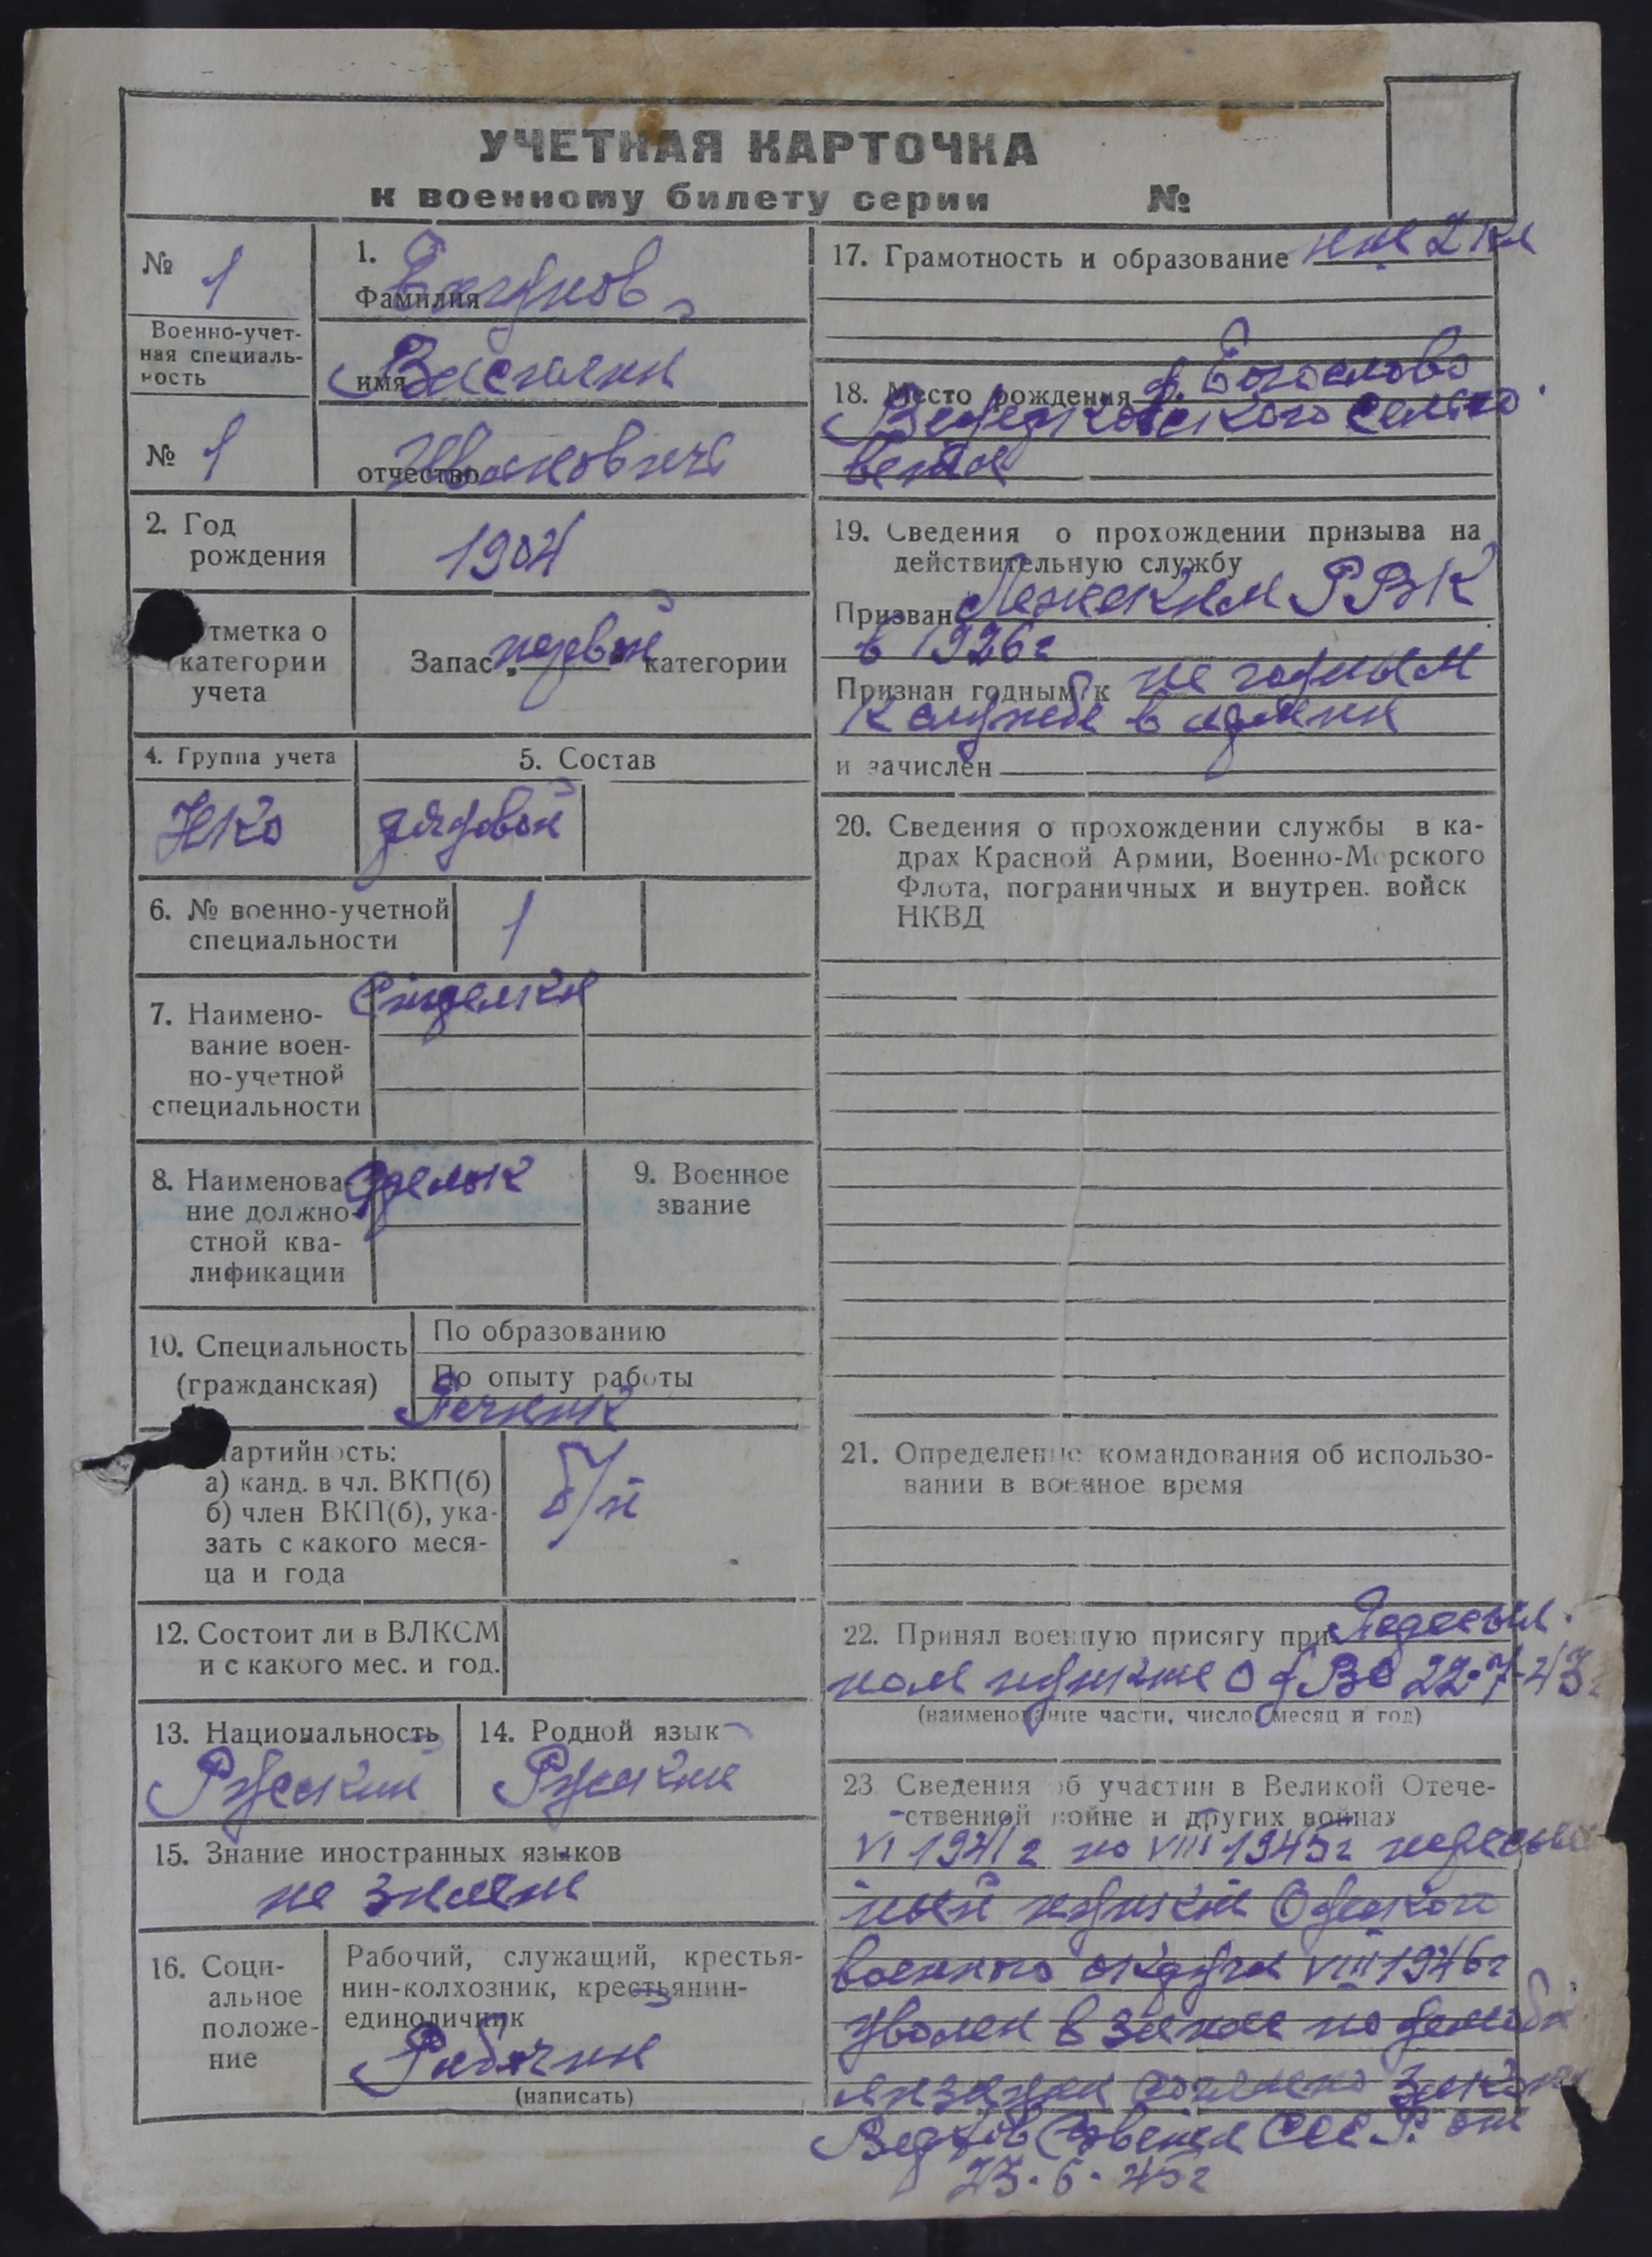 УЧЕТНАЯ КАРТОЧКА
к военному билету серии №
№ 1
Военно-учет-
ная специаль-
ность
№ 1
1.
Фамилия
имя Василий
отчество Иванович
2. Год
рождения
1904
тметка о
категории
учета
Запас первой категории
4. Группа учета
НКО
5. Состав
рядовой
6. № военно-учетной
специальности
1
7. Наимено-
вание воен-
но-учетной
специальности
Стрелки
8. Наименова-
ние должно-
стной ква-
лификации
Стрелок
9. Военное
звание
10. Специальность
(гражданская)
По образованию
По опыту работы
Печник
артийность:
а) канд. в чл. ВКП(б)
б) член ВКП(б), ука-
зать с какого меся-
ца и года
б/п
12. Состоит ли в ВЛКСМ
и с какого мес. и год.
13. Национальность
Русский
14. Родной язык
Русский
15. Знание иностранных языков
не знает
16. Соци-
альное
положе-
ние
Рабочий, служащий, крестья-
нин-колхозник, крестьянин-
единоличник
Рабочий
(написать)
17. Грамотность и образование 2 кл
18. Место рождения д. Богослово
сельсо
вета
19. Сведения о прохождении призыва на
действительную службу
Призван РВК
в 1926г
Признан годным к не годным
к службе в армии
и зачислен
20. Сведения о прохождении службы в ка-
драх Красной Армии, Военно-Морского
Флота, пограничных и внутрен. войск
НКВД
21. Определение командования об использо-
вании в военное время
22. Принял военную присягу при Пересыл.
ном пункте ОдВО 22.7-43г
(наименование части, число, месяц и год)
23. Сведения об участии в Великой Отече-
ственной войне и других войнах
VI 1941г по VIII 1945г пересыль
ный пункт Одеского
военного округа VIII 1946г
уволен в запас по демоби
лизации согласно закона
Верхов Совета СССР. от
23.6.45г